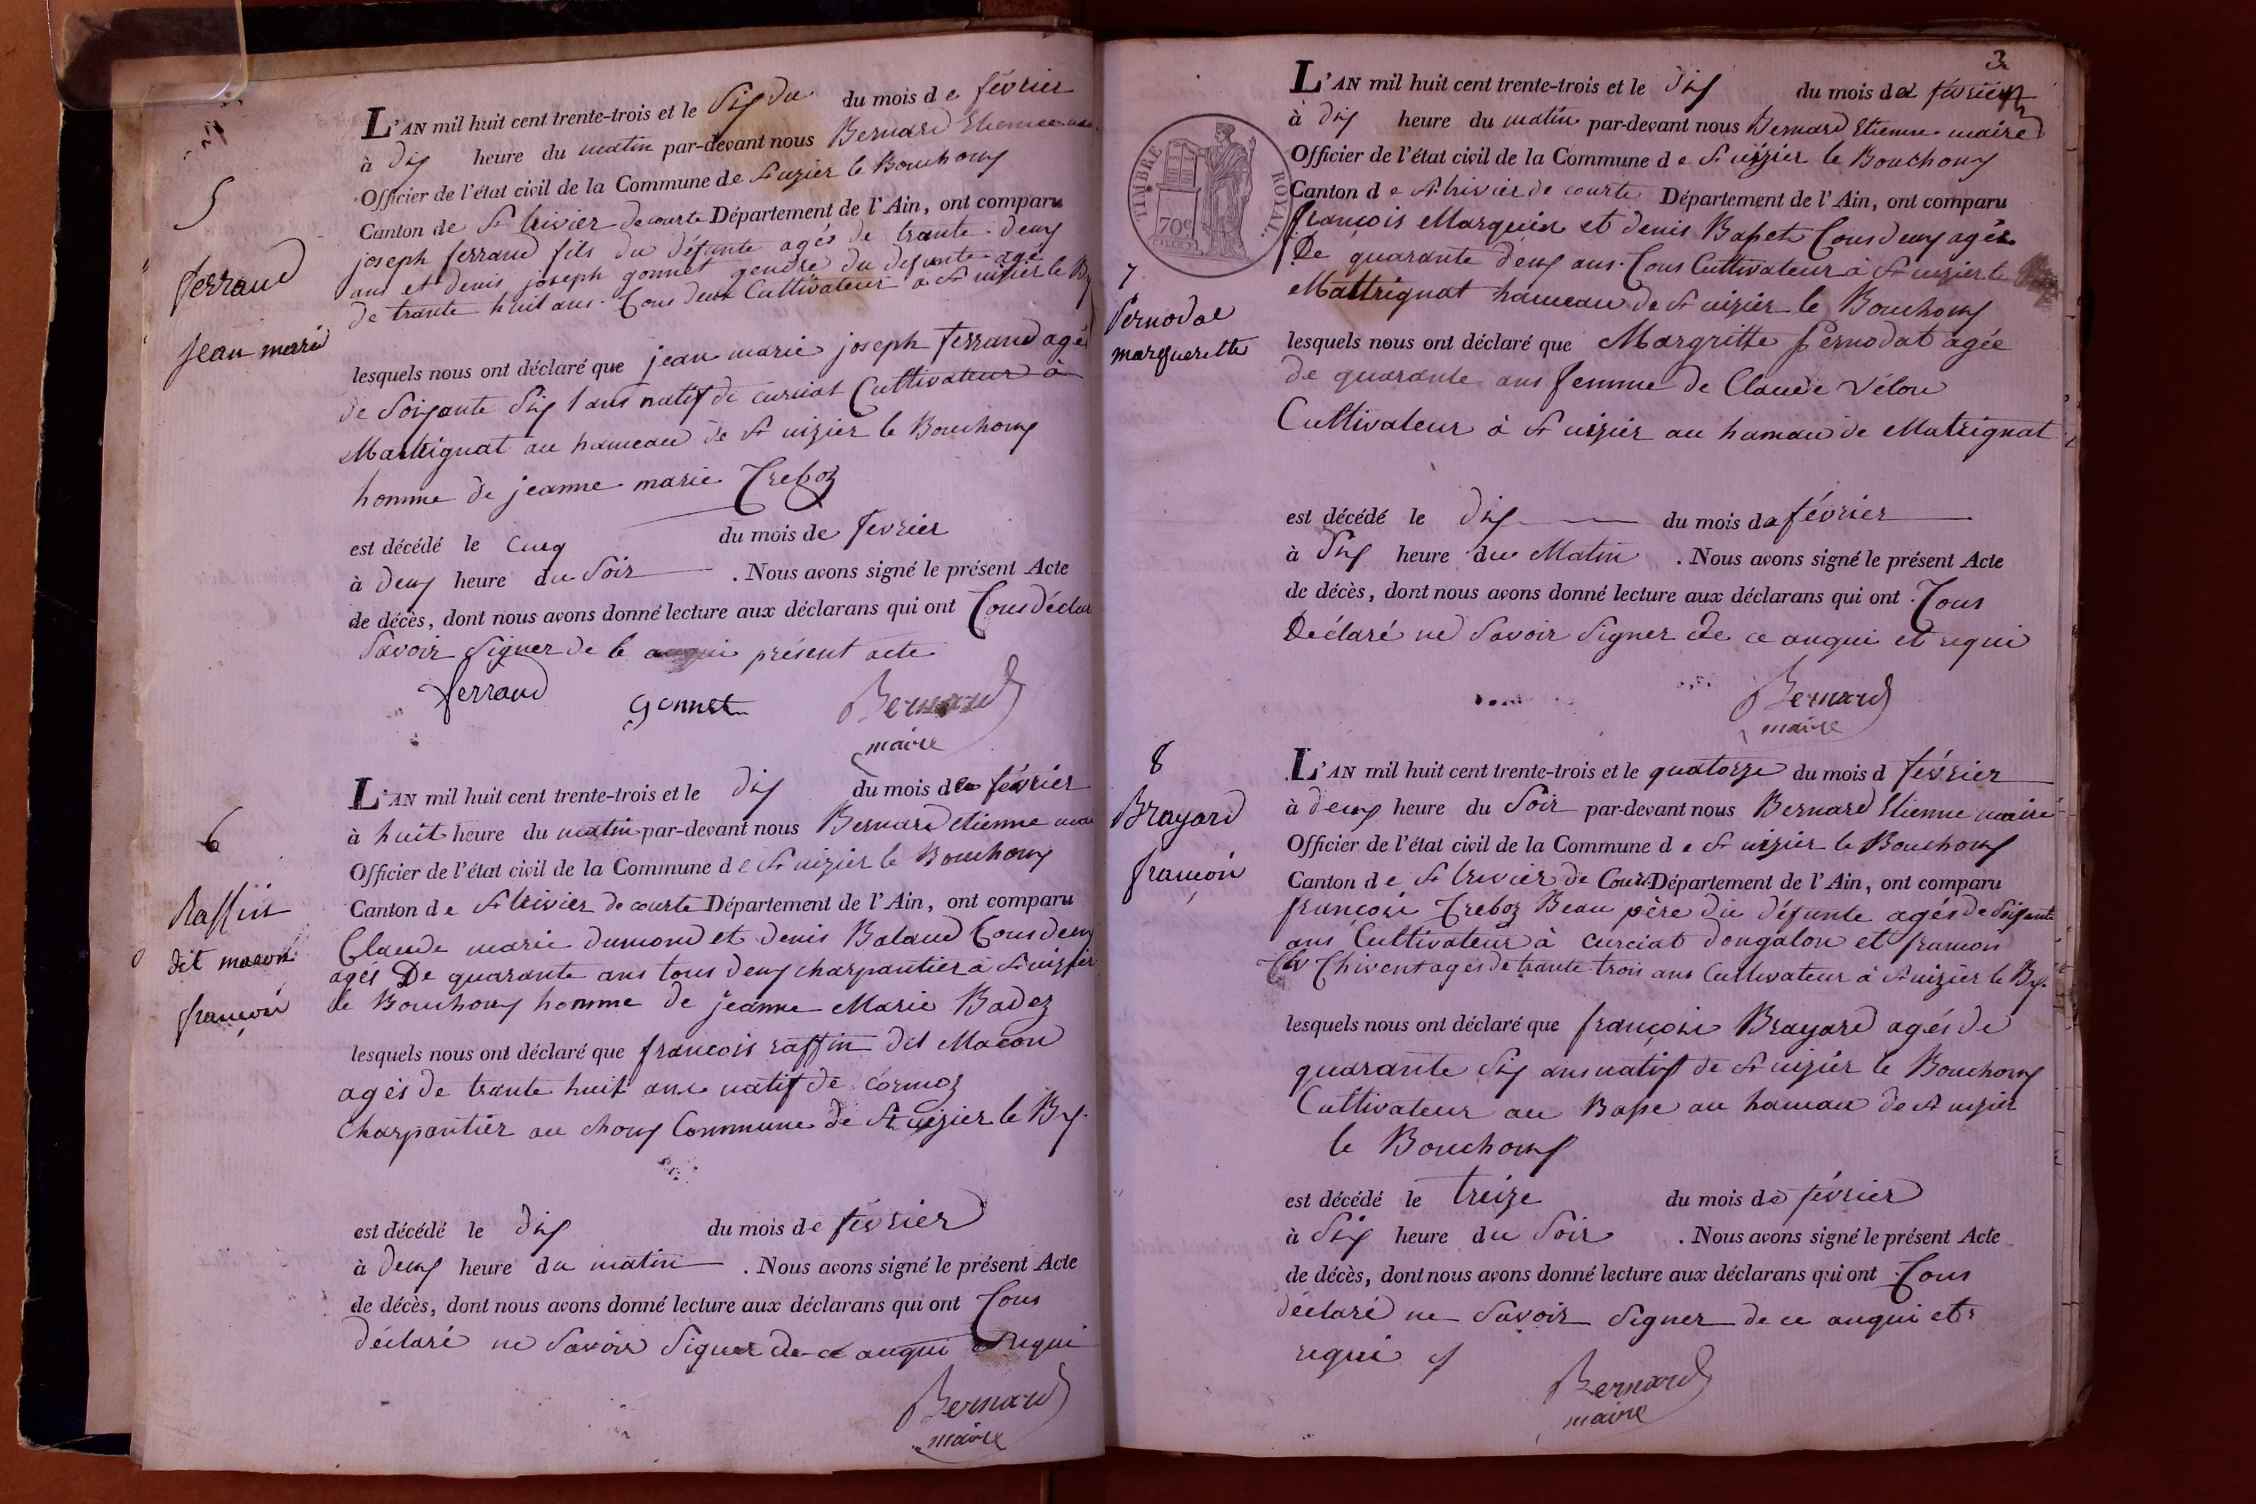 5
ferraud
jean marie
L'AN mil huit cent trente-trois et le Six du du mois de février
à dix heure du matin par-devant nous Bernard Etienne
Officier de l'état civil de la Commune de St nizier le Bouchoux
Canton de St trivier de courte Département de l'Ain, ont comparu
joseph ferraud fils du défunte agés de trante deux
ans et denis joseph gonnet gendre du defunte agé
de trante huit ans. Tous deux Cultivateur à St nizier le Bx
lesquels nous ont déclaré que jean marie joseph ferraud agé
de Soixante Six ans natif de curciat Cultivateur à
Mattrignat au hameau de St nizier le Bouchoux
homme de jeanne marie Treboz
est décédé le Cinq du mois de fevrier
à deux heure du Soir . Nous avons signé le présent Acte
de décès, dont nous avons donné lecture aux déclarans qui ont Tous déclaré
Savoir Signer de le présent acte
ferraud gonnet Bernard
maire
6
Raffin
dit macon
francois
L'AN mil huit cent trente-trois et le dix du mois de février
à huit heure du matin par-devant nous Bernard etienne
Officier de l'état civil de la Commune de St nizier le Bouchoux
Canton de St trivier de courte Département de l'Ain, ont comparu
Claude marie dumond et denis Balaud Tous deux
agés De quarante ans tous deux charpantier à St nizier
le Bouchoux homme de jeanne Marie Badez
lesquels nous ont déclaré que françois raffin dit Macon
agés de trante huit ans natif de Cormoz
charpantier au choux Commune de St nizier le Bx.
est décédé le dix du mois de février
à deux heure du matin . Nous avons signé le présent Acte
de décès, dont nous avons donné lecture aux déclarans qui ont Tous
déclaré ne Savoir Signer de ce anqui et requi
Bernard
maire
3
TIMBRE ROYAL
70c
7
Pernodat
margueritte
L'AN mil huit cent trente-trois et le dix du mois de février
à dix heure du matin par-devant nous Bernard Etienne maire
Officier de l'état civil de la Commune de St nizier le Bouchoux
Canton de St trivier de courte Département de l'Ain, ont comparu
françois Marquin et denis Bapet Tous deux agés
De quarante deux ans. Tous Cultivateur à St nizier le
Mattrignat hameau de St nizier le Bouchoux
lesquels nous ont déclaré que Margritte Pernodat agée
de quarante ans femme de Claude Vélon
Cultivateur à St nizier au hamau de Matrignat
est décédé le dix du mois de février
à Six heure du Matin . Nous avons signé le présent Acte
de décès, dont nous avons donné lecture aux déclarans qui ont Tous
Déclaré ne Savoir Signer de ce anqui et requi
Bernard
maire
8
Brayard
francois
L'AN mil huit cent trente-trois et le quatorze du mois d février
à deux heure du Soir par-devant nous Bernard Etienne maire
Officier de l'état civil de la Commune de St nizier le Bouchoux
Canton de St trivier de Court Département de l'Ain, ont comparu
françois Treboz Beau père du défunte agés de Soixante
ans Cultivateur à curciat dongalon et francois
Chivent agés de trante trois ans Cultivateur à St nizier le Bx.
lesquels nous ont déclaré que françois Brayard agés de
quarante Six ans natif de St nizier le Bouchoux
Cultivateur au Bape au hamau de St nizier
le Bouchoux
est décédé le treize du mois de février
à Six heure du Soir . Nous avons signé le présent Acte
de décès, dont nous avons donné lecture aux déclarans qui ont Tous
déclaré ne Savoir Signer de ce anqui et
requi
Bernard
maire